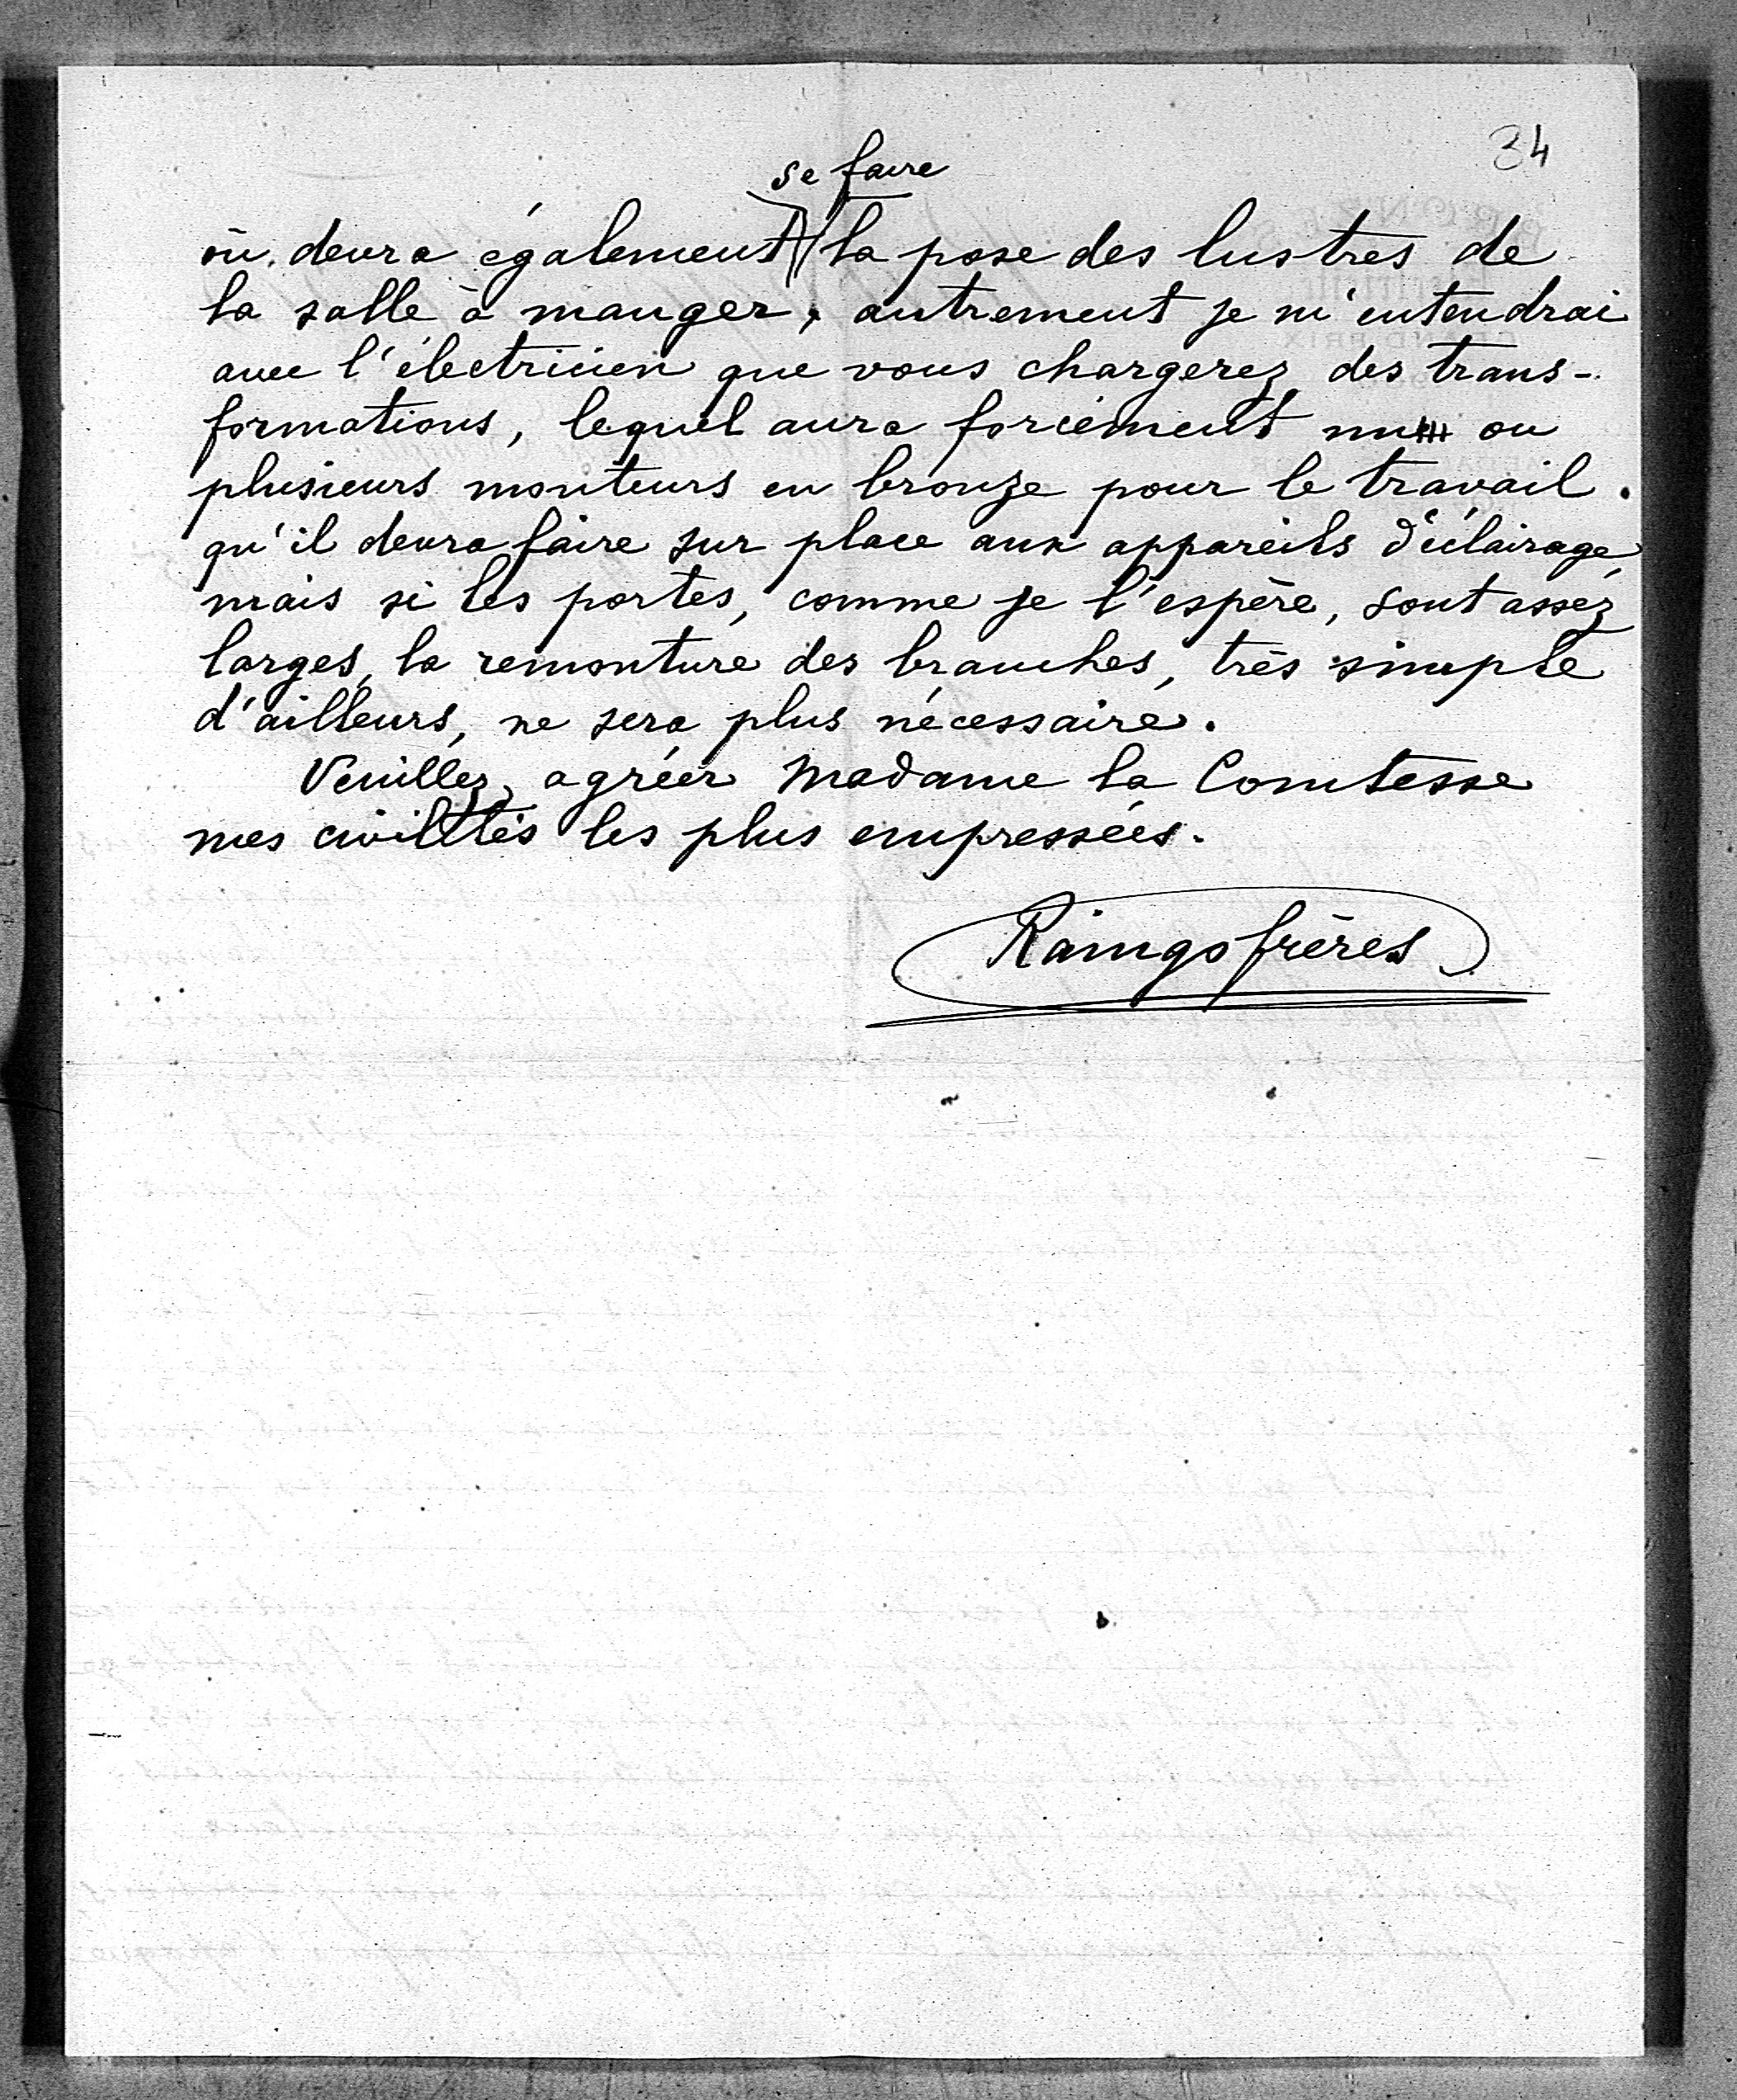 34
se faire
où devra également la pose des lustres de
la salle à manger, autrement je m'entendrai
avec l'électricien que vous chargerez des trans-
formations, lequel aura forcément un ou
plusieurs monteurs en bronze pour le travail
qu'il devra faire sur place aux appareils d'éclairage,
mais si les portes, comme je l'espère, sont assez
larges, la remonture des branches, très simple
d'ailleurs, ne sera plus nécessaire.
Veuillez agréer Madame la Comtesse
mes civilités les plus empressées.
Raingo frères